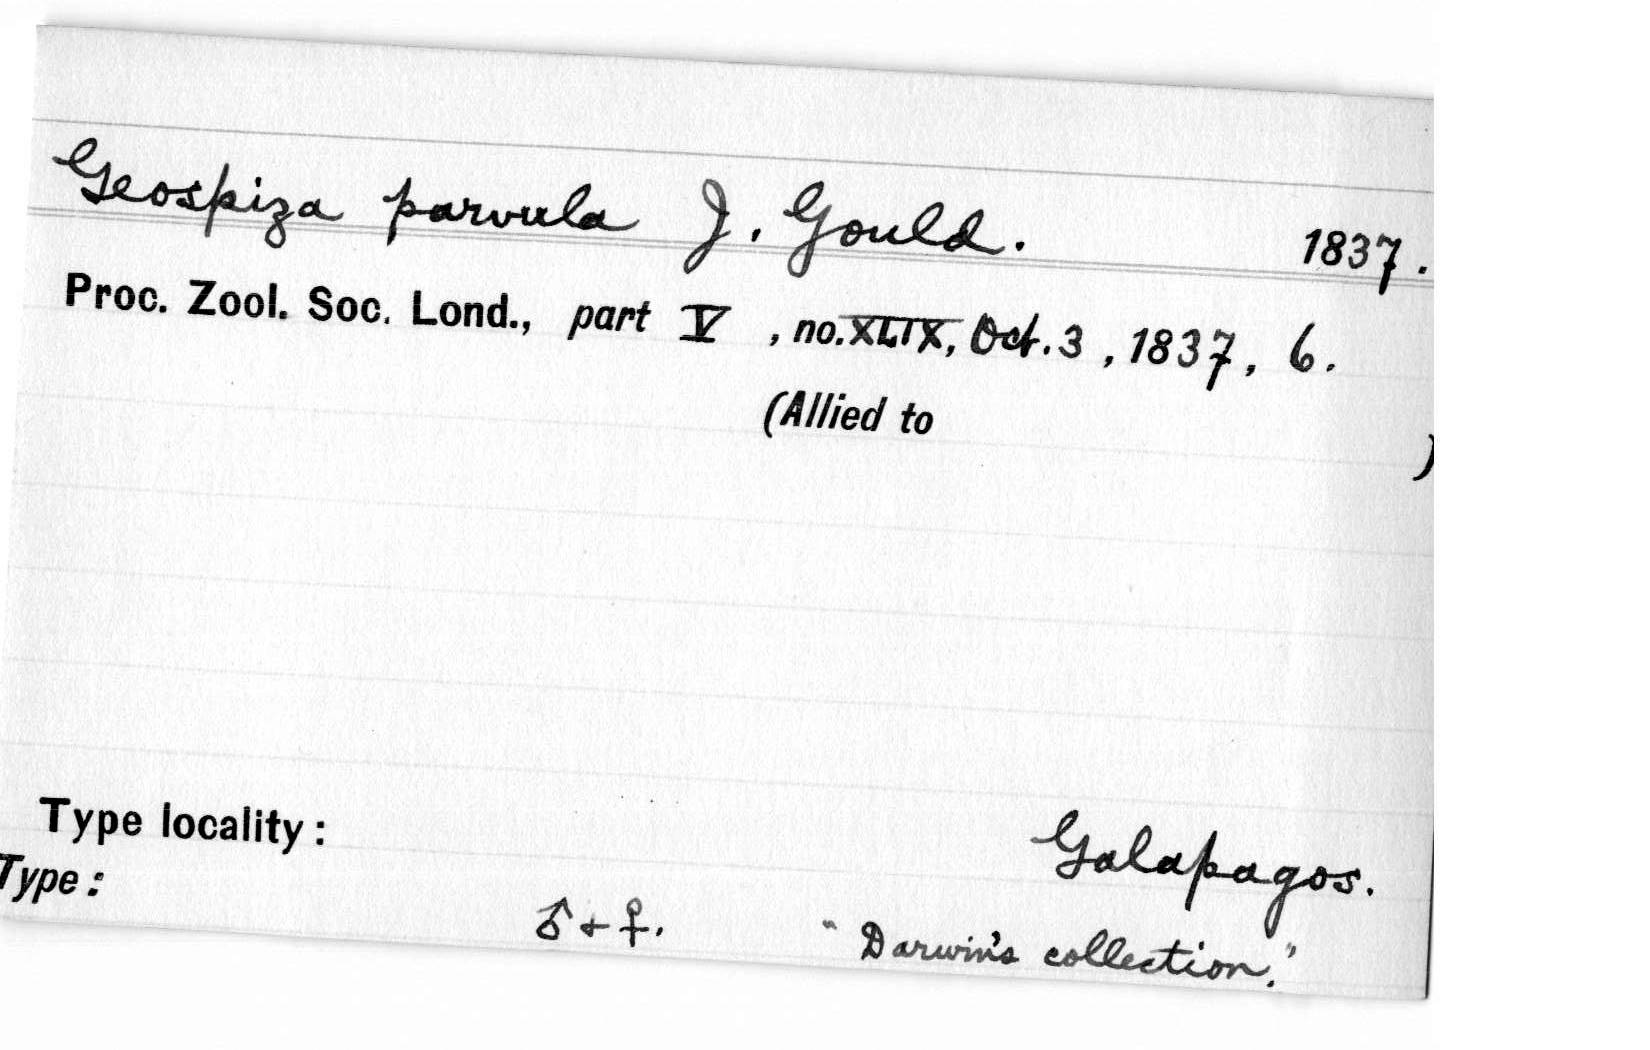 Geospiza parvula J. Gould. 1837.
Proc. Zool. Soc. Lond., part V , no. XLIX, Oct. 3 , 1837, 6.
(Allied to )
Type locality: Galapagos.
Type: ♂ + ♀. "Darwin's collection."